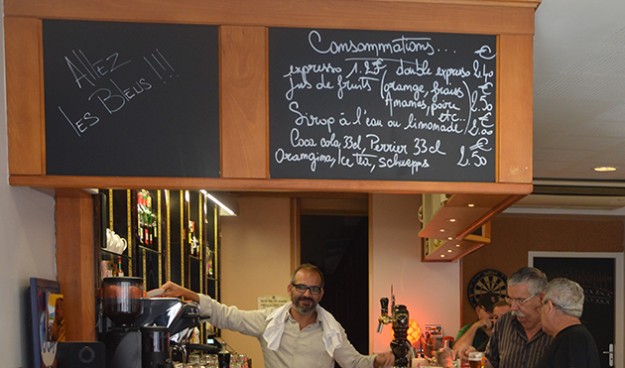 Allez
Les Bleus !!!
Consommations...
€
expresso 1.25€ double expresso 2.40
Jus de fruits (orange, fraises €
Ananas, poire 2.50
etc...
Sirop à l'eau ou limonade) €
2.00
Coca cola 33cl, Perrier 33cl €
Orangina, Ice Tea, schwepps 2.50